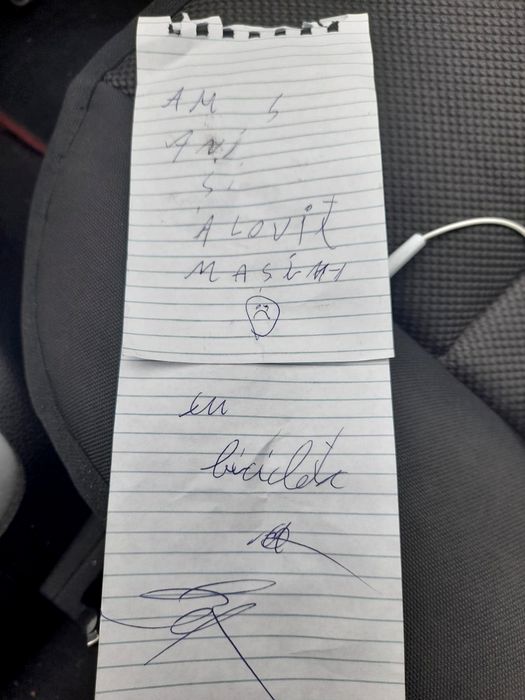 AM 5
ANI
SI
ALOVIT
MASINI
cu
bicicleta